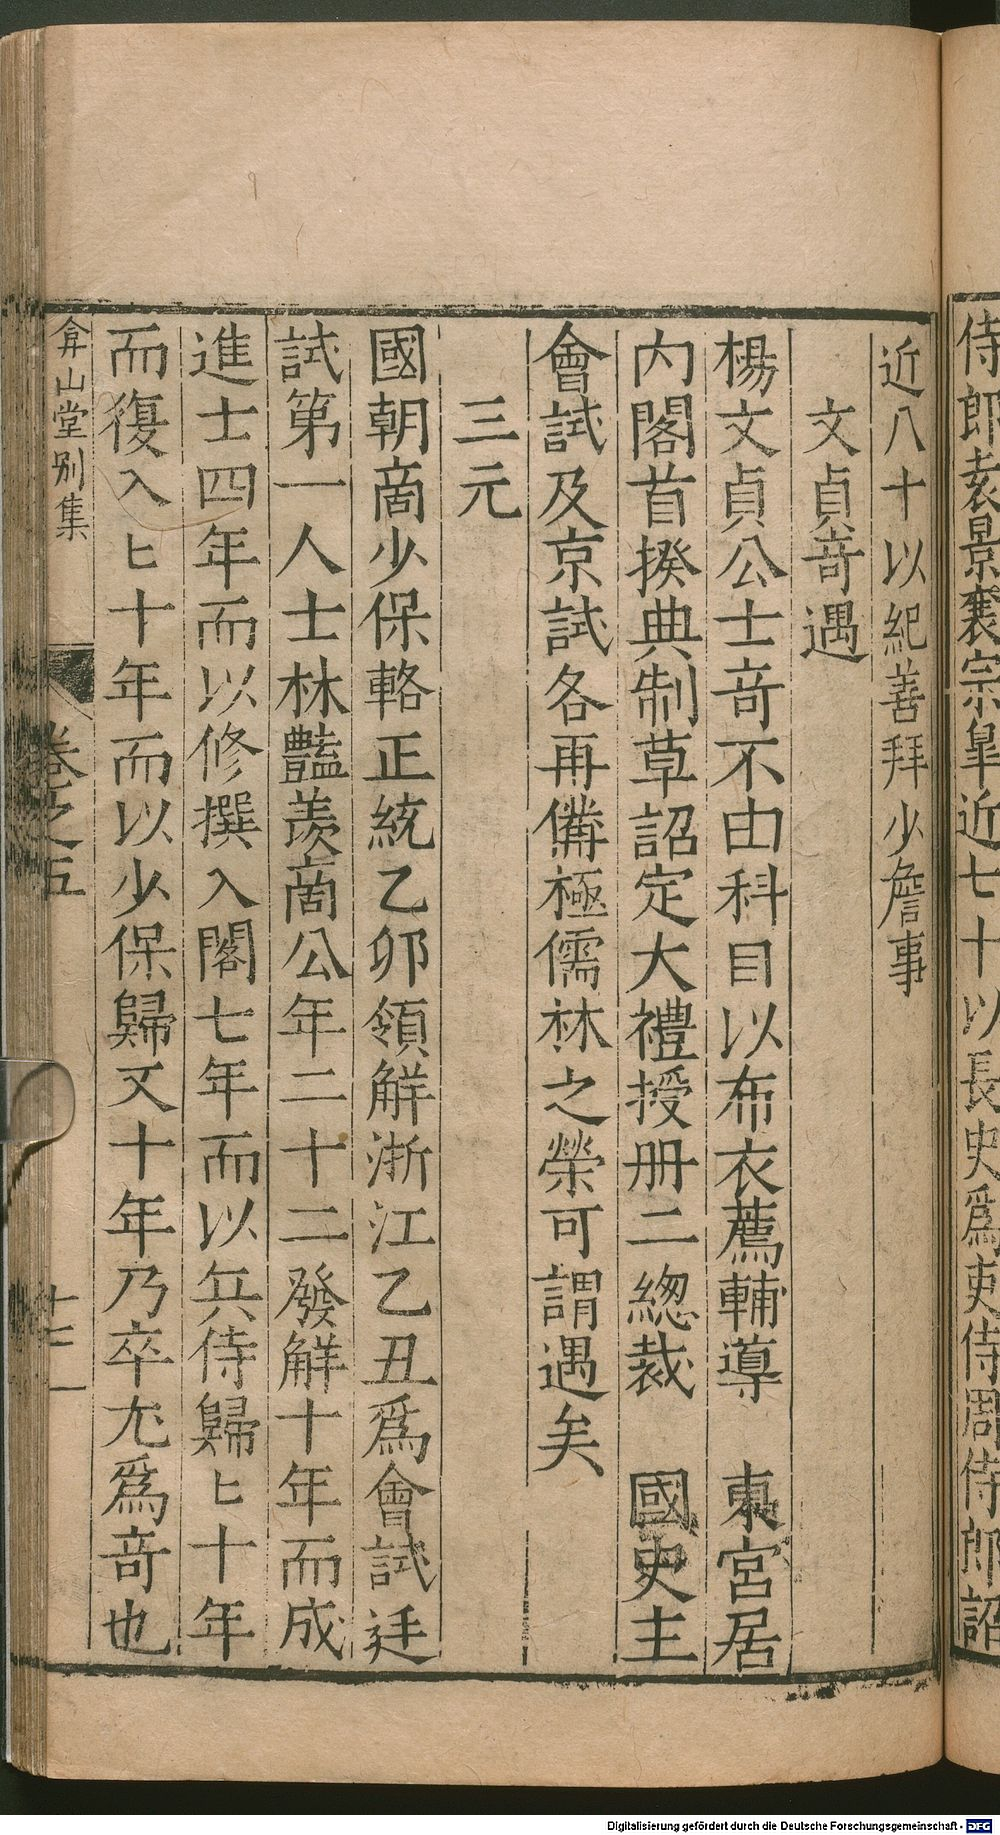 侍郎袁景襄宗臯近七十以長史爲吏侍周侍郎詔
近八十以紀善拜少詹事
文貞竒遇
楊文貞公士竒不由科目以布衣薦輔導　東宮居
内閣首揆典制草詔定大禮授册二緫裁　國史主
會試及京試各再備極儒林之榮可謂遇矣
三元
國朝商少保輅正統乙卯領解浙江乙丑爲會試廷
試第一人士林豔羨商公年二十二發解十年而成
進士四年而以修撰入閣七年而以兵侍歸七十年
而復入七十年而以少保歸又十年乃卒尤爲竒也
弇山堂别集
卷之五
Digitalisierung gefördert durch die Deutsche Forschungsgemeinschaft - DFG